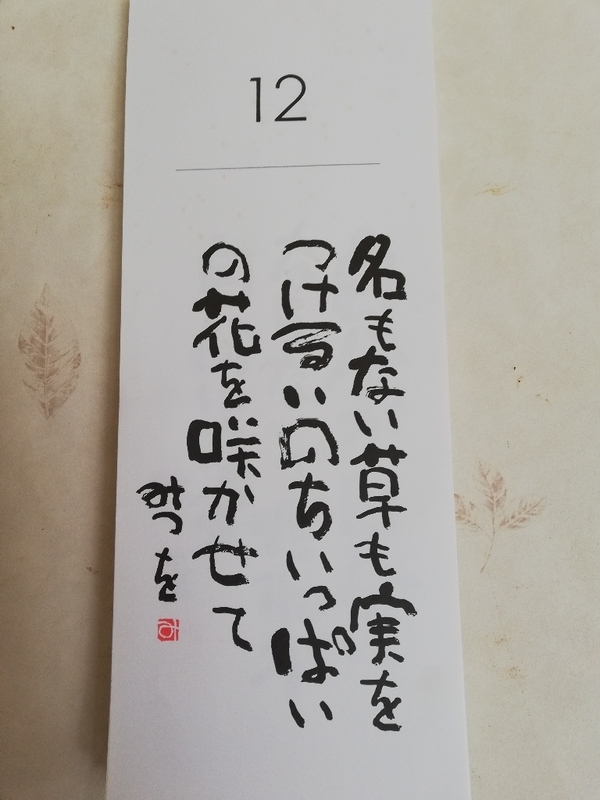 12
名もない草も実を
つけるいのちいっぱい
の花を咲かせて
みつを
み